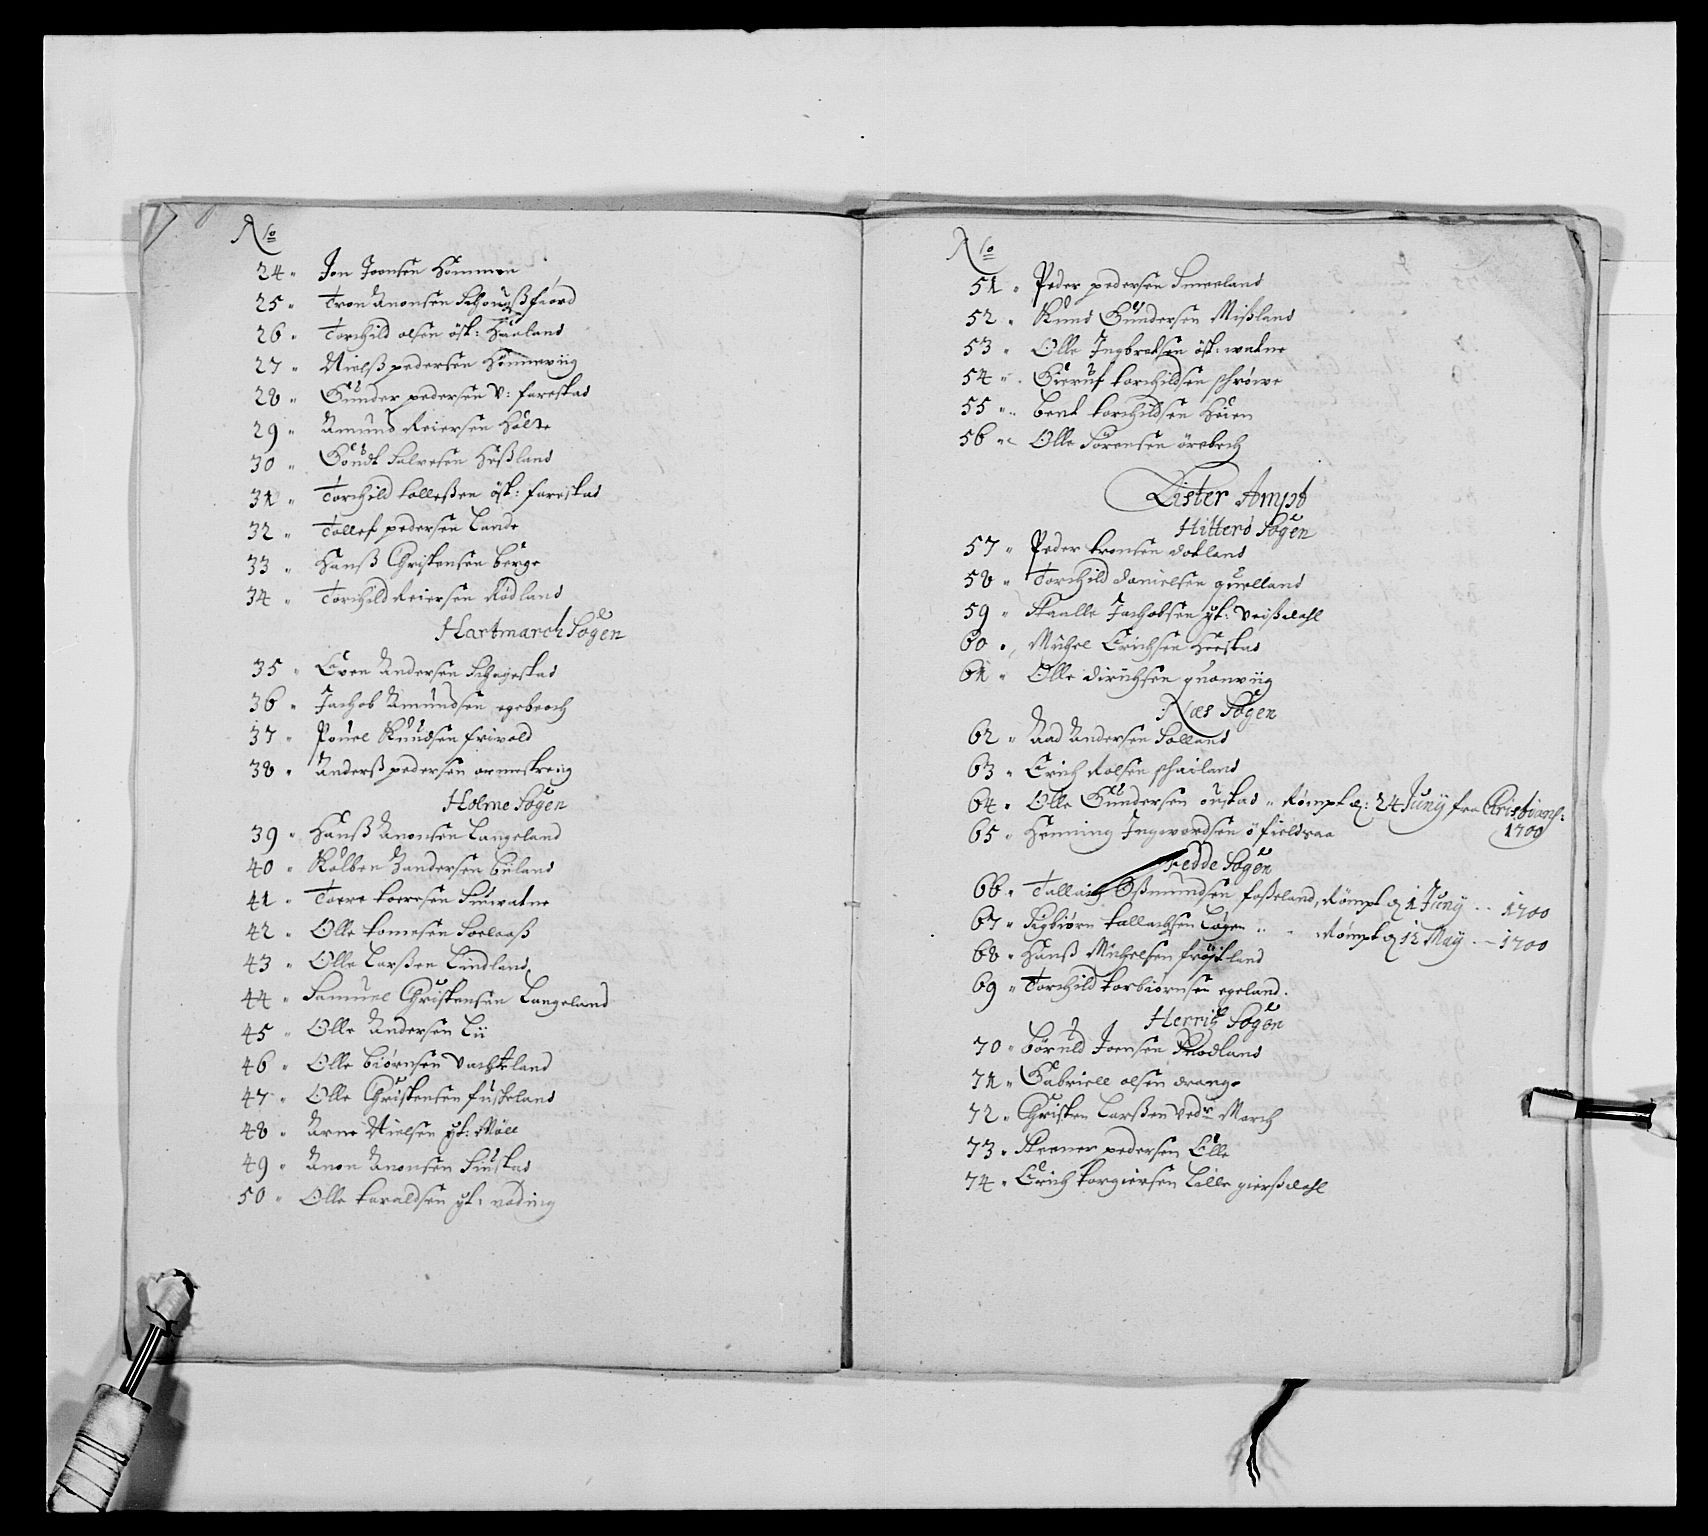 No
24 " Jon Joensen Hommen
25 " Tron Anonsen Schougßfiord
26 " Torchild olsen öst: Haaland
27 " Nielß pedersen Hönneviig
28 " Gunder pedersen V: farestad
29 " Amund Reiersen Holte
30 " Goudt Salvesen Heßland
31 " Torchild tollefsen öst: farestad
32 " Tollef pedersen Lande
33 " Hanß Christensen berge
34 " Torchild Reiersen Rödland
Hartmarch Sogen
35 " Even Andersen Schagestad
36 " Jachob Amundsen egebroch
37 " Pouel Knudsen frivold
38 " Anderß pedersen ormestreng
Holme Sogen
39 " Hanß Anonsen Langeland
40 " Kolben Gundersen büland
41 " Toere toeresen Siuvatne
42 " Olle tomesen
43 " Olle Larßen Lindland
44 " Samuel Christensen Langeland
45 " Olle Andersen Lii
46 " Olle biörnsen Vachteland
47 " Olle Christensen fuskeland
48 " Arne Nielsen yt: Möll
49 " Anon Anonsen Siustad
50 " Olle taraldsen yt: nöding
No
51 " Peder pedersen Smeeland
52 " Knud Gundersen Mißland
53 " Olle Ingbretsen öst: watne
54 " Gieruf torchildsen schröwe
55 " bent torchildsen Heien
56 " Olle Sörensen örebech
Lister Ampt
Hitterö Sogen
57 " Peder tronsen dokland
58 " Torchild danielsen quelland
59 " Staalle Jachobsen yt: Veißdahl
60 " Michel Erichsen Heestad
61 " Olle dirichsen quanviig
Næs Sogen
62 " Aad Andersen Solland
63 " Erich Rolsen
64 " Olle Gundersen oustad " Römpt d: 24 Junij fra Christians:
1700
65 " Henning Ingvordsen ö fieldsaa
Fedde Sogen
66 " Tallaig Oßmundsen foßeland, Römpt d 1 Junij -- 1700
67 " Sigbiörn tallachsen Logen " " Römpt d 12 Maij -- 1700
68 " Hanß Michelsen fröitland
69 " Torchild torbiörnsen egeland.
Herrits Sogen
70 " böruld Joensen Rodland
71 " Gabriell olsen drange
72 " Christen Larßen Vedr March
73 " Steener pedersen Elle
74 " Erich torgiersen Lille gierßdahl